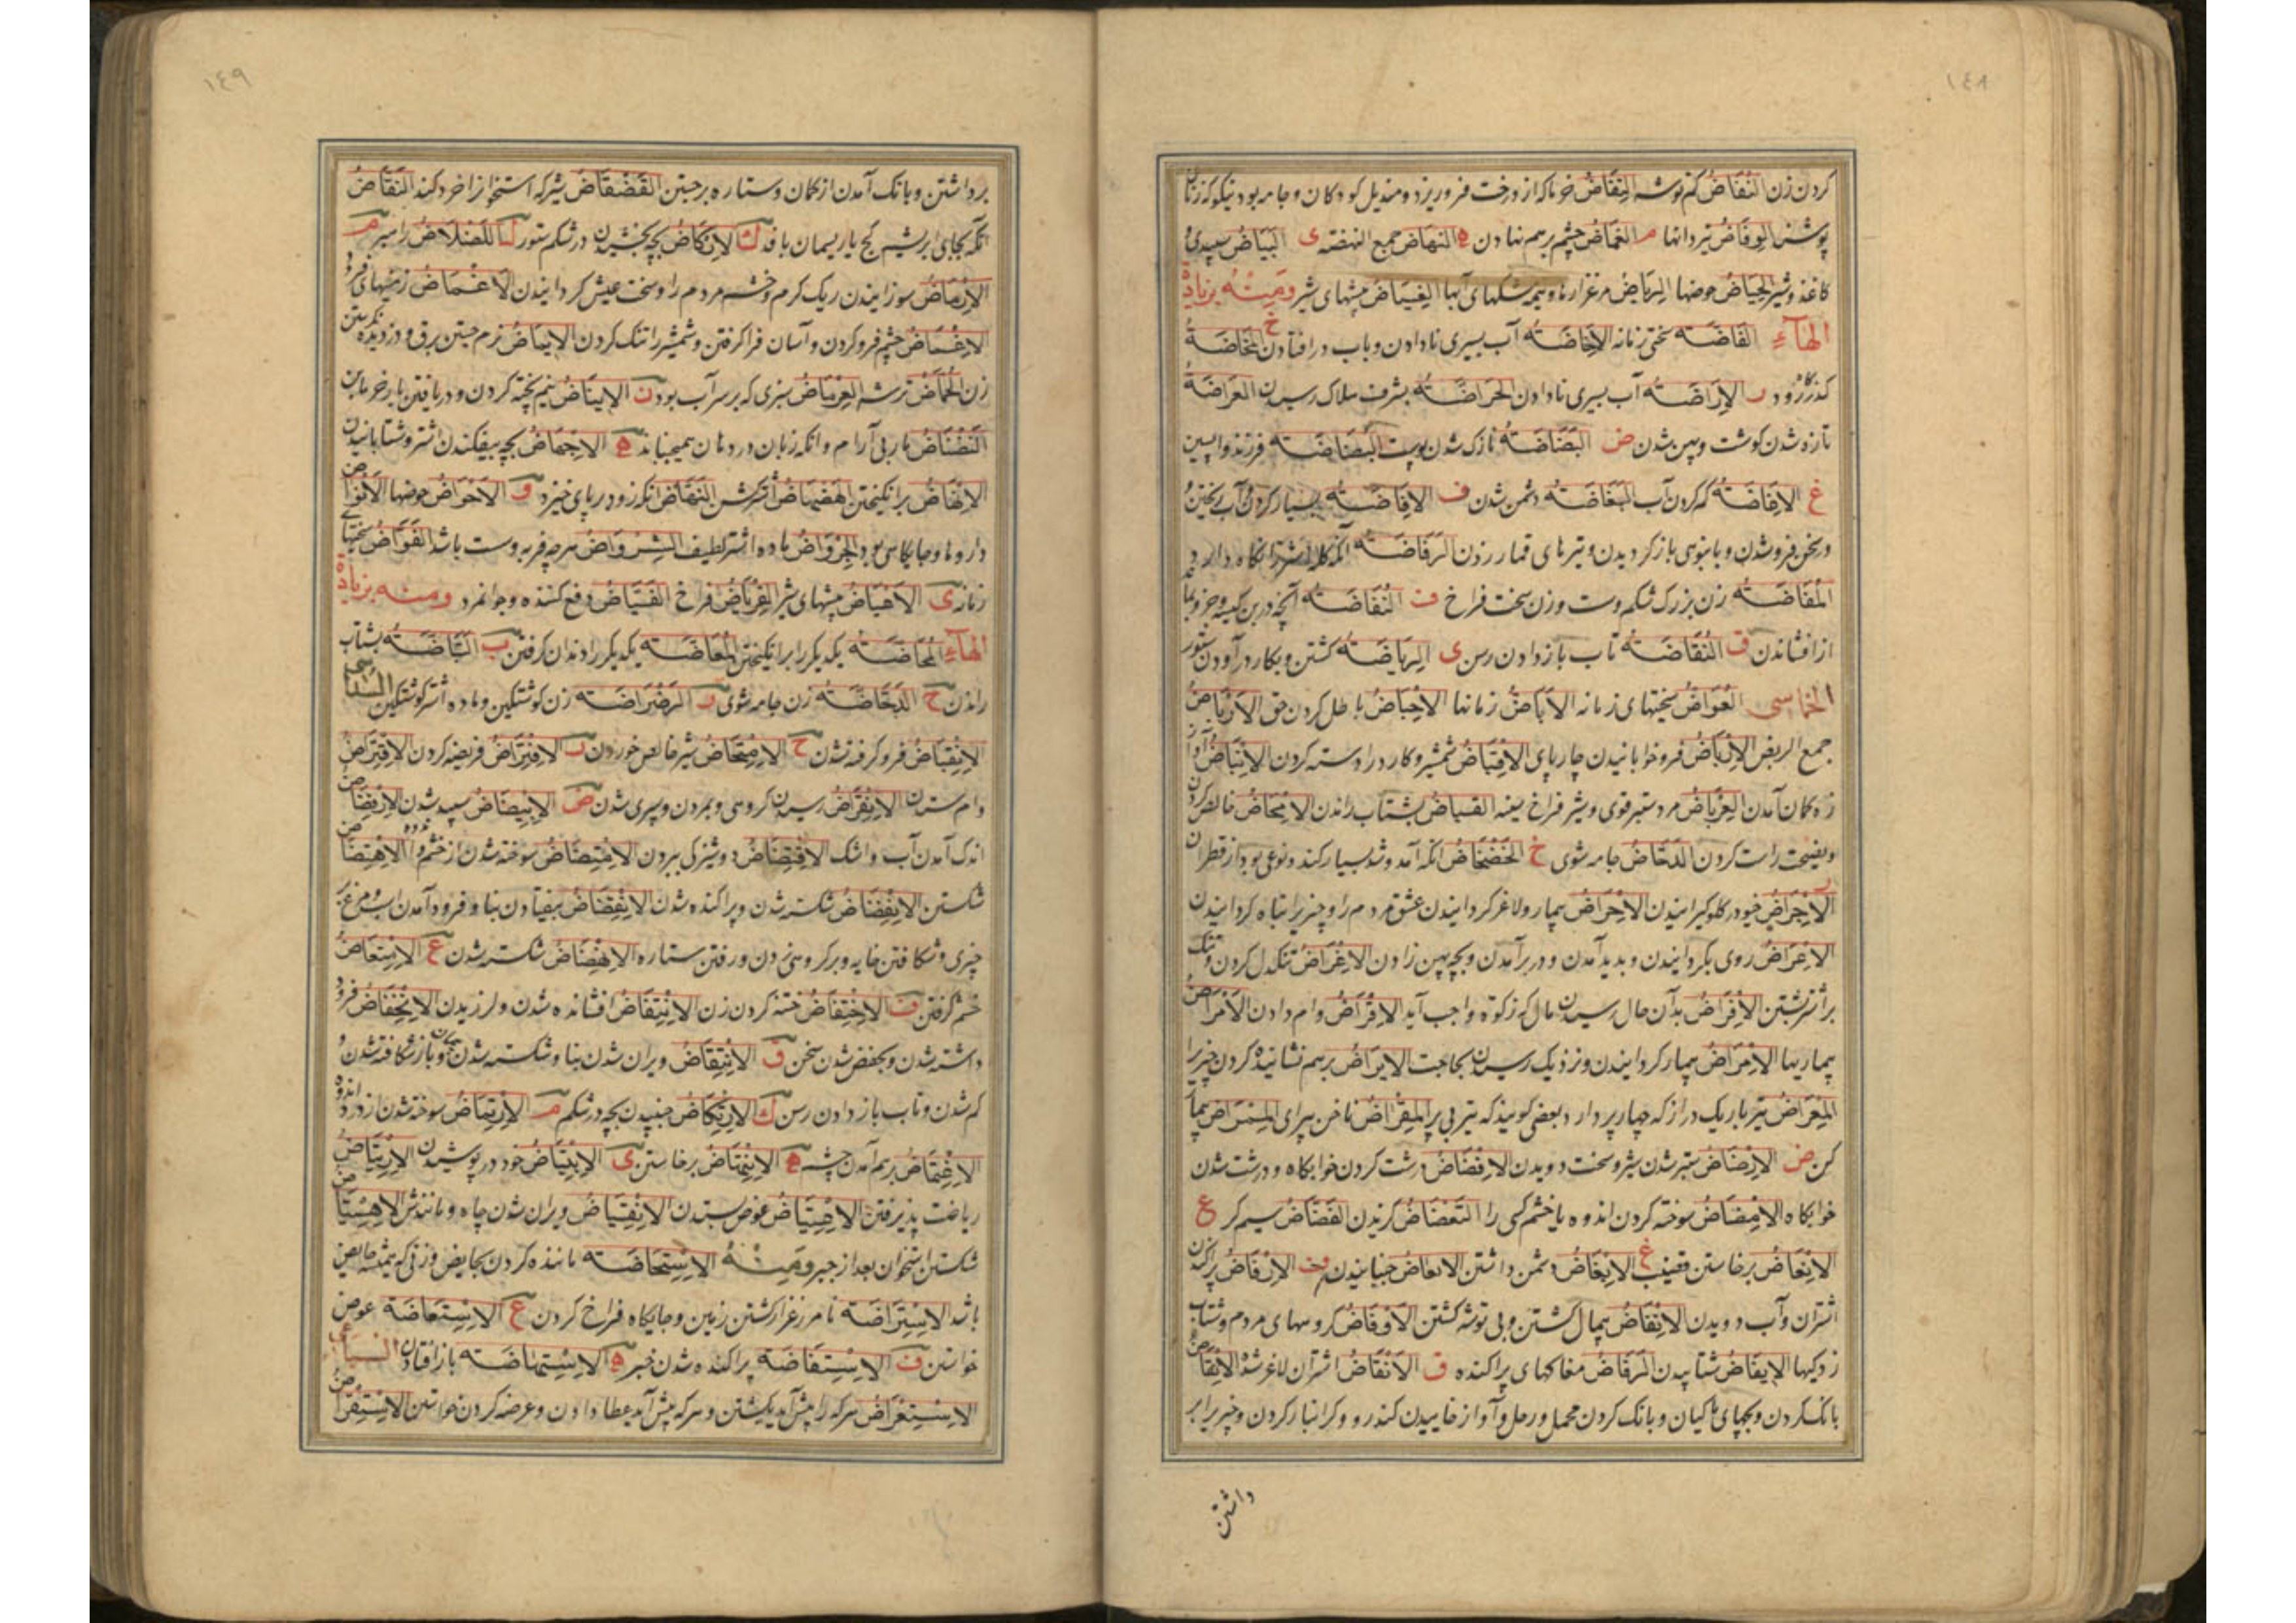 ١٤٨
كردن زن النُفَاضُ كم توشه النِفَاضُ خرما كه از درخت فرو ريزد ومنديل كودكان وجامه بود نيكو كه زنان
پوشند الوِفَاضُ تيردانها م الغِمَاضُ چشم برهم نهادن ه النهَاض جمع النهضه ى البَيَاضُ سپيدى
كاغذ وشير الحِيَاضُ حوضها الرِيَاضُ مرغزارها وهمه شكلهاى آبها الغِيَاضُ بيشهاى شير ومَنِهُ بزيادة
الهآء القَاضَه سختى زمانه الاِخَاضَه آب بسيرى نادادن وباب درافتادن خ المخَاضَة
كذركاه رود ر الاِرَاضَه آب بسيرى نادادن الحَرَاضَه بشرف هلاك رسيدن العَرَاضَة
تازه شدن كوشت وپهن شدن ض البَضَاضَة نازك شدن پوست البُضَاضَه فرزند واپسين
غ الاِفَاضَه كم كردن آب البَغَاضَه دشمن شدن ف الاِفَاضَه بسيار كردن آب ريختن و
در سخن فروشدن وبانبوهى باز كرديدن وتيرهاى قمار زدن الرَفَاضَه انكه كله اشتر را نكاه دارد
المُفَاضَه زن بزرك شكم وست وزن سخت فراخ ف النُفَاضَه آنچه در بن كيسه وجز وبماند
از افشاندن ق النُقَاضَه تاب باز دادن رسن ى الرِيَاضَه كشتن وبكار درآوردن ستور
الخماسى العُوَاضُ سختيهاى زمانه الاَبَاضُ زمانها الاِحبَاضُ باطل كردن حق الاَرْبَاضُ
جمع الربض الاِرْبَاضُ فروخوابانيدن چارپاى الاِقبَاضُ شمشير وكارد را دسته كردن الاِنبَاضُ آواز
زه كمان آمدن العِربَاضُ مرد ستبر قوى وشير فراخ سينه القباضُ بشتاب راندن الاِمحَاضُ خالص كردن
ونصيحت راست كردن الدَحَّاضُ جامه شوى خ الخَضْخَاضُ انكه آمد وشد بسيار كند ونوعى بود از قطران
ر الاِجْرَاضُ خيو در كلو كيرانيدن الاِحْرَاضُ بيمار ولاغر كردانيدن عشق مردم را وچيزى را تباه كردانيدن
الاِعْرَاضُ روى بكردانيدن وپديد آمدن ودر برآمدن وبچه پهن زادن الاِغْرَاضُ تنكدل كردن وتنك
بر اشتر بستن الاِفْرَاضُ بدان حال رسيدن مال كه زكوة واجب آيد الاِقْرَاضُ وام دادن الاَمْرَاضُ
بيماريها الاِمْرَاضُ بيمار كردانيدن ونزديك رسيدن بحاجت الاِيرَاضُ برهم نشانيده كردن چيزى را
المِعْرَاضُ تير باريك دراز كه چهار پر دارد وبعضى كويند كه تير بى پر المِقْرَاضُ ناخن پيراى المِمْرَاضُ بيمار
كن ض الاِرضَاضُ ستبر شدن شير وسخت دويدن الاِقضَاضُ درشت كردن خوابكاه ودرشت شدن
خوابكاه الاِمضَاضُ سوخته كردن اندوه ياخشم كسى را التَعْضَاضُ كزيدن الفَضَّاضُ سيم كر ع
الاِنعَاضُ برخاستن قضيب غ الاِبغَاضُ دشمن داشتن الانغاضُ جنبانيدن ف الاِرفَاضُ پراكندن
اشتران وآب دويدن الاِنفَاضُ بيمال كشتن وبى توشه كشتن الاَوفَاضُ كروههاى مردم وشتاب
زدكيها الاِيفَاضُ شتابيدن الرفَاضُ مغاكهاى پراكنده ق الاَنْقَاضُ اشتران لاغر شده الاِنقَاضُ
بانك كردن وبچهاى ماكيان وبانك كردن محمل ورحل وآواز خاييدن كندر وو كرانبار كردن وچيزى را بر
داشتن
١٤٩
برداشتن وبانك آمدن از كمان وستاره برجستن القَضْقَاضُ شير كه استخوانرا خرد كند النَقَّاضُ
انكه بجاى ابريشم كج يا ريسمان بافد ك الاِركَاضُ بچه جنبيدن در شكم ستور ل اللَضْلَاضُ راهبر م
الاِرْمَاضُ سوزانيدن ريك كرم وخشم مردم را وسخت عيش كردانيدن الاَغْمَاضُ زمينهاى فرود
الاِغْمَاضُ چشم فروكردن وآسان فراكرفتن وشمشير را تنك كردن الاِيمَاضُ نرم جستن برق ودزديده نكريستن
زن الحُمَّاضُ ترشه العِرْمَاضُ سبزى كه بر سر آب بود ن الاِينَاضُ نيم پخته كردن ودريافتن بار خرما بن
النَضْنَاضُ مار بى آرام وانكه زبان در دهان همى جنباند ه الاِجْهَاضُ بچه بيفكندن اشتر وشتابانيدن
الاِنهَاضُ برانكيختن الهَضهَاضُ اشتر كشن النَهَّاضُ انكه زود برپاى خيزد و الاَحْوَاضُ حوضها الاَنْوَاضُ
داروها وجايكاهى بود الجِرْوَاضُ ماده اشتر لطيف الشِرْوَاضُ هرچه فربه وست باشد العَوَّاضُ سختيهاى
زمانه ى الاَغْيَاضُ بيشهاى شير العِريَاضُ فراخ الفَيَّاضُ دفع كننده وجوانمرد ومنه بزيادة
الهآء المُخَاضَه يكديكر را برانكيختن المُعَاضَه يكديكر را دندان كرفتن ب القَبَّاضَه بشتاب
راندن ح الدَحَّاضَه زن جامه شوى ر الرَضْرَاضَه زن كوشتكين وماده اشتر كوشتكين السداسى
الاِنقِبَاضُ فروكرفته شدن ح الاِمتِحَاضُ شير خالص خوردن ر الاِفتِرَاضُ فريضه كردن الاِقتِرَاضُ
وام ستدن الاِنقِرَاضُ رسيدن كروهى وبمردن وسپرى شدن ض الاِبيِضَاضُ سپيد شدن الاِرفِضَاضُ
اندك آمدن آب واشك الاِفتِضَاضُ دوشيزكى ببردن الاِمتِضَاضُ سوخته شدن از خشم واندوه الاِهتِضَاضُ
شكستن الاِنفِضَاضُ شكسته شدن وپراكنده شدن الاِنقِضَاضُ بيفتادن بنا وفرود آمدن اسب ومرغ بر
چيزى وشكافتن خايه وبر كروهى زدن ورفتن ستاره الاِنهِضَاضُ شكسته شدن ع الاِمتِعَاضُ
خشم كرفتن ف الاِختِفَاضُ ختنه كردن زن الاِنتِفَاضُ افشانده شدن ولرزيدن الاِنخِفَاضُ فرود
داشته شدن وبخفض شدن سخن ق الاِنتِقَاضُ ويران شدن بنا وشكسته شدن پيمان وباز شكافته شدن و
كم شدن وتاب باز دادن رسن ك الاِرتِكَاضُ جنبيدن بچه در شكم م الاِرتِمَاضُ سوخته شدن از درد واندوه
الاِغتِمَاضُ برهم آمدن چشم ه الاِنتِهَاضُ برخاستن ى الاِبتِيَاضُ خود درپوشيدن الاِرتِيَاضُ
رياضت پذيرفتن الاِعتِيَاضُ عوض ستدن الاِنقِيَاضُ ويران شدن چاه ومانندش الاِهتِيَاضُ
شكستن استخوان بعد از جبر ومنه الاِستِحَاضَه ماننده كردن بحايض وزنى كه هميشه حايض
باشد الاِستِرَاضَه نامرغزار كشتن زمين وجايكاه فراخ كردن ع الاِستِعَاضَة عوض
خواستن ف الاِستِفَاضَه پراكنده شدن خبر ه الاِستِهَاضَه باز افتادن السباعى
الاِستِعْرَاضُ هركه را پيش آيد بكشتن وهركه پيش آيد عطا دادن وعرضه كردن خواستن الاِستِقْرَاضُ